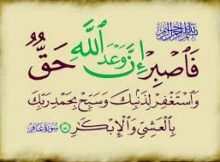 بسم الله الرحمن الرحيم
فَاصْبِرْ إِنَّ وَعْدَ اللَّهِ حَقٌّ
وَاسْتَغْفِرْ لِذَنْبِكَ وَسَبِّحْ بِحَمْدِ رَبِّكَ
بِالْعَشِيِّ وَالْإِبْكَارِ
سورة غافر